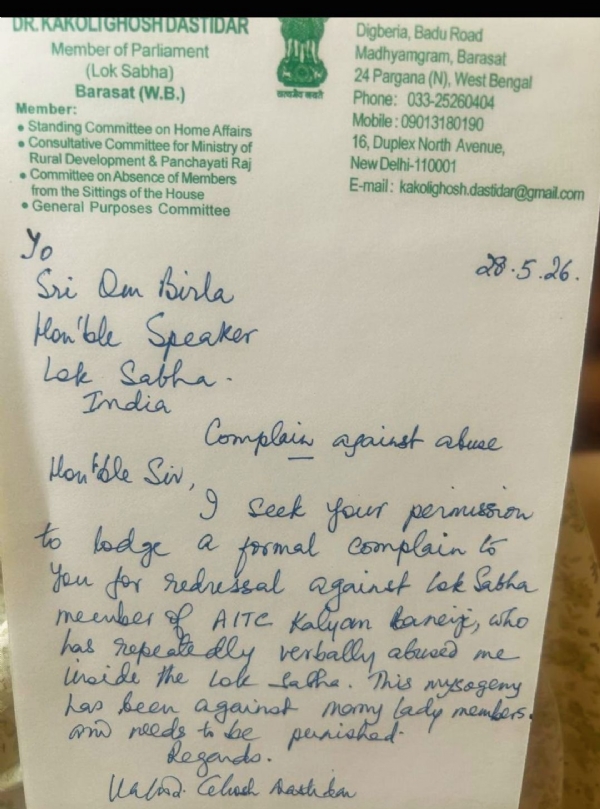 DR. KAKOLI GHOSH DASTIDAR
Member of Parliament
(Lok Sabha)
Barasat (W.B.)
Member:
• Standing Committee on Home Affairs
• Consultative Committee for Ministry of
Rural Development & Panchayati Raj
• Committee on Absence of Members
from the Sittings of the House
• General Purposes Committee
सत्यमेव जयते
Digberia, Badu Road
Madhyamgram, Barasat
24 Pargana (N), West Bengal
Phone: 033-25260404
Mobile : 09013180190
16, Duplex North Avenue,
New Delhi-110001
E-mail : kakolighosh.dastidar@gmail.com
To
28.5.26.
Sri Om Birla
Hon'ble Speaker
Lok Sabha.
India
Complain against abuse
Hon'ble Sir,
I seek your permission
to lodge a formal complain to
you for redressal against Lok Sabha
member of AITC Kalyan Banerji, who
has repeatedly verbally abused me
inside the Lok Sabha. This mysogeny
has been against many lady members.
and needs to be punished.
Regards.
Kakoli Ghosh Dastidar